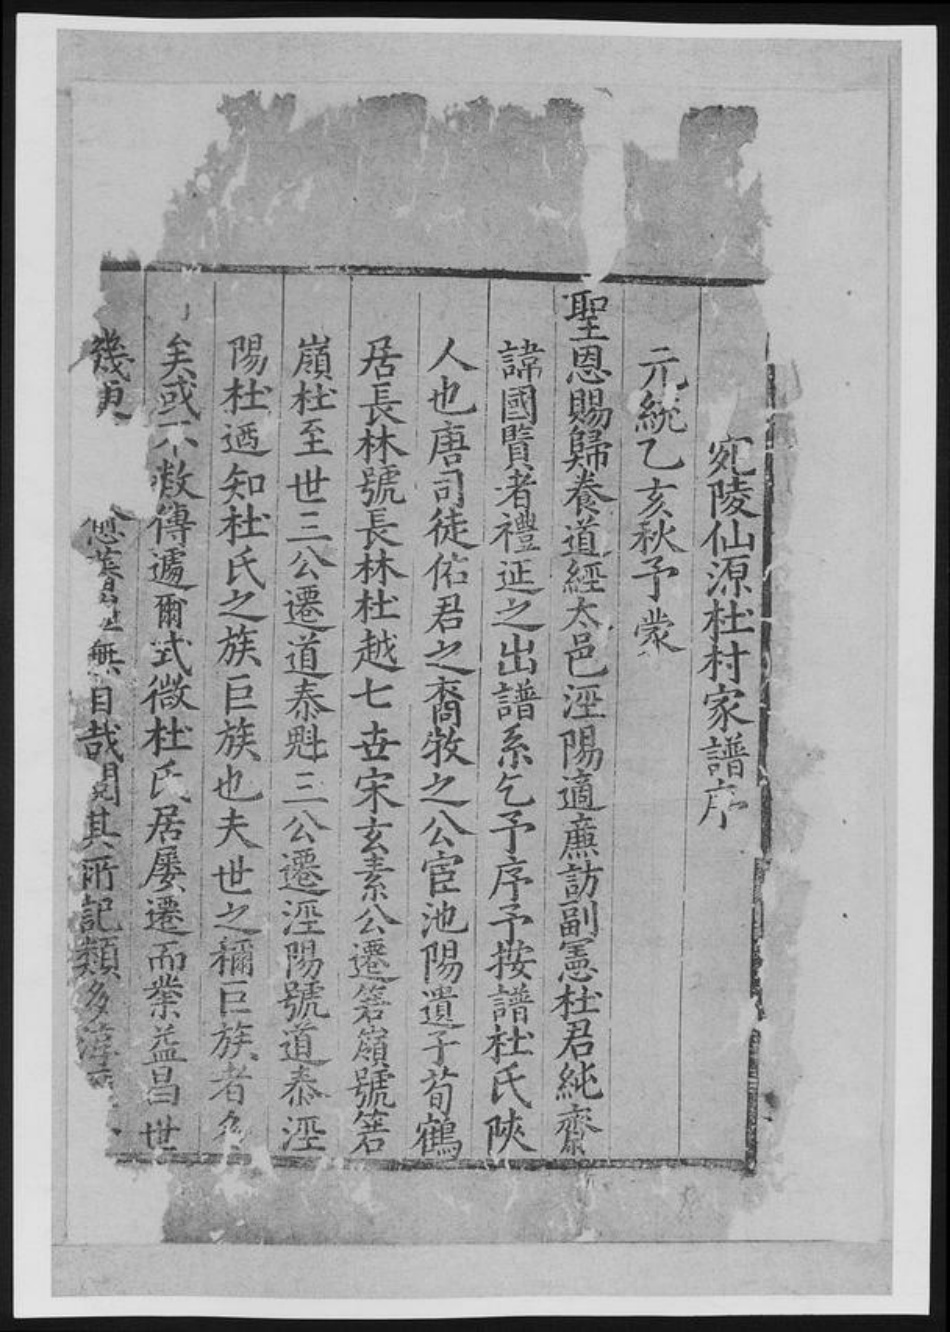 宛陵仙源杜村家譜序
元統乙亥秋予蒙
聖恩賜歸養道經太邑涇陽適廉訪副憲杜君純齋
諱國賢者禮延之出譜系乞予序予按譜杜氏陝
人也唐司徒佑君之裔牧之公宦池陽遺子荀鶴
居長林號長林杜越七世宋玄素公遷箬嶺號箬
嶺杜至世三公遷道泰魁三公遷涇陽號道泰涇
陽杜迺知杜氏之族巨族也夫世之稱巨族者多
矣或不數傳遽爾式微杜氏居屢遷而業益昌世
幾更 無 目哉閱其所記類多淳